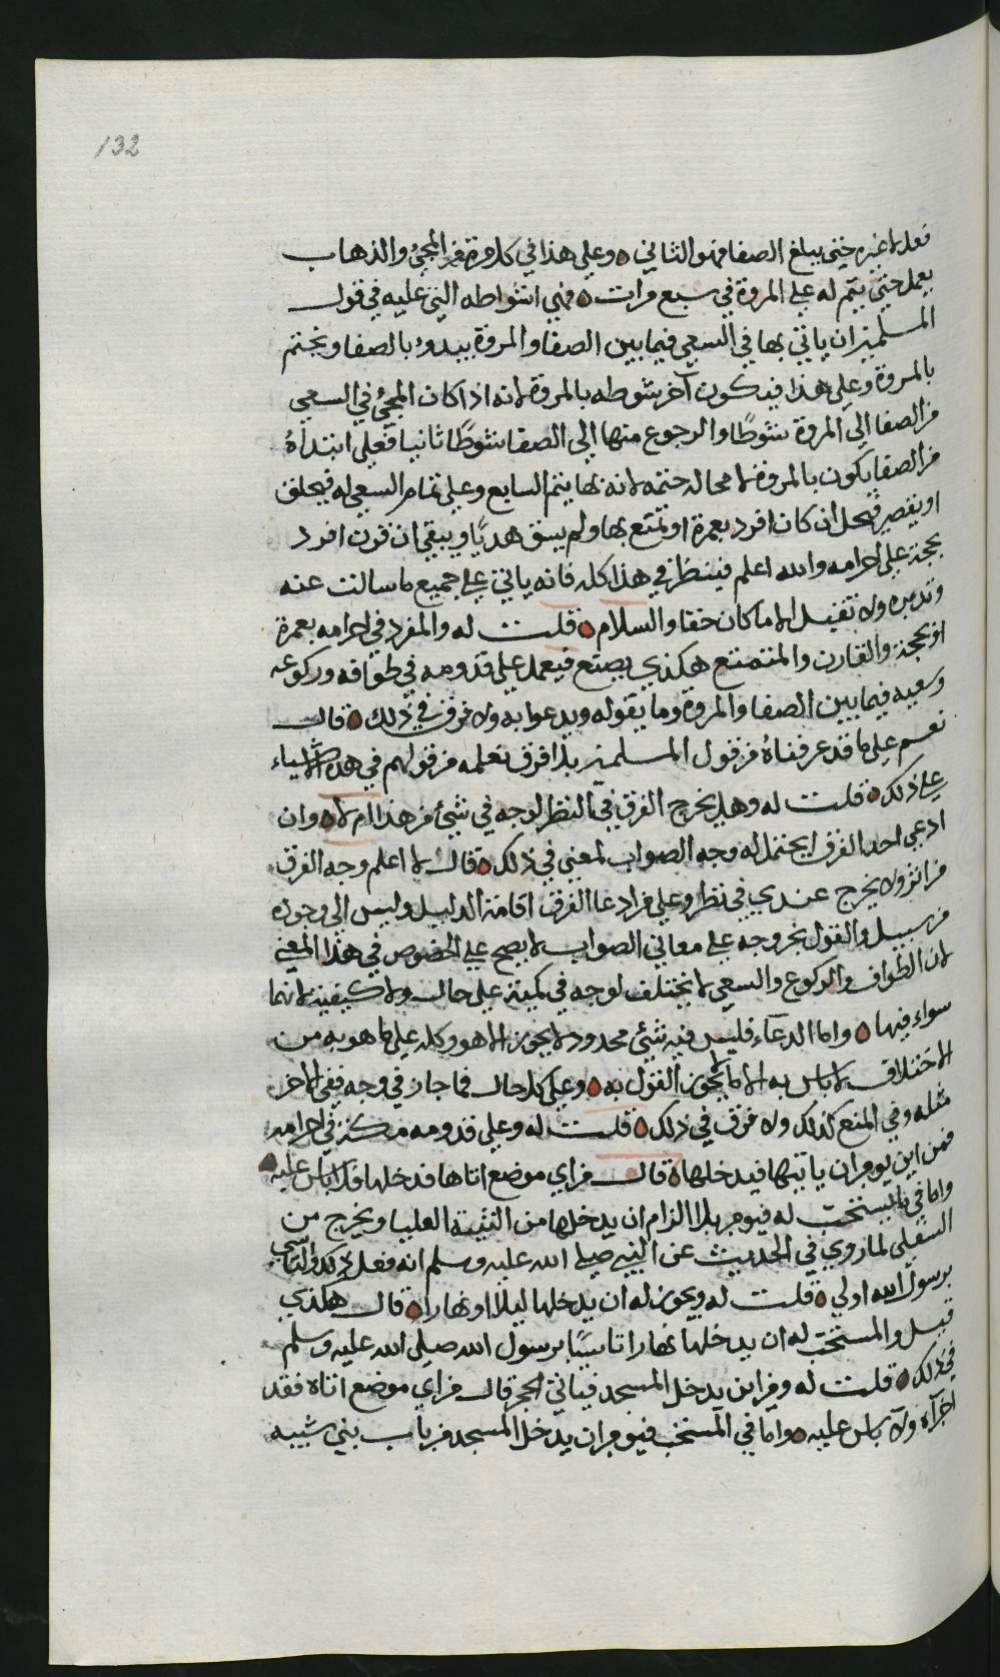 132
فعله لا غيره حتى يبلغ الصفا فهو الثاني وعلى هذا في كل مرة من المجيء والذهاب
يعمل حتى يتم له على المروة في سبع مرات فهي اشواطه التي عليه في قول
المسلمين ان ياتي بها في السعي فيما بين الصفا والمروة يبدوء بالصفا ويختم
بالمروة وعلى هذا فيكون آخر شوطه بالمروة لانه اذا كان المجيء في السعي
من الصفا الى المروة شوطًا والرجوع منها الى الصفا شوطًا ثانيا فعلى ابتداءهُ
من الصفا يكون بالمروة لا محالة ختمه لانه بها يتم السابع وعلى تمام السعي له فيحلق
او يقصر فيحل ان كان افرد بعمرة او تمتع بها ولم يسق هديًا ويبقى ان قرن افرد
بحجة على احرامه والله اعلم فينظر في هذا كله فانه ياتي على جميع ما سالت عنه
وتدبره ولا تقبل الا ما كان حقا والسلام قلت له والمفرد في احرامه بعمرة
او بحجة والقارن والمتمتع هكذي يصنع فيعمل على قدومه في طوافه وركوعه
وسعيه فيما بين الصفا والمروة وما يقوله ويدعوا به ولا فرق في ذلك قال
نعم على ما قد عرفناهُ من قول المسلمين بلا فرق نعلمه من قولهم في هذه الاشياء
على ذلك قلت له وهل يخرج الفرق في النظر لوجه في شيئ من هذا ام لا وان
ادعى احد الفرق ايحتمل له وجه الصواب لمعنى في ذلك قال لا اعلم وجه الفرق
من اثر ولا يخرج عندي في نظر وعلى من ادعا الفرق اقامة الدليل وليس الى وجوده
من سبيل والقول بخروجه على معاني الصواب لا يصح على الخصوص في هذا المعنى
لان الطواف والركوع والسعي لا يختلف لوجه في كمية على حال ولا كيفية لانها
سواء فيها واما الدعآء فليس فيه شيئ محدود لا يجوز الا هو وكله على ما هو به من
الاختلاف لا باس به الا ما لا يجوز القول به وعلى كل حال فما جاز في وجه ففي الاخر
مثله وفي المنع كذلك ولا فرق في ذلك قلت له وعلى قدومه مكة في احرامه
فمن اين يومر ان ياتيها فيدخلها قال من اي موضع اتاها فدخلها فلا باس عليه
واما في ما يستحب له فيومر بلا الزام ان يدخلها من الثنية العليا ويخرج من
السفلى لما روي في الحديث عن النبي صلى الله عليه وسلم انه فعل ذلك والتاسّي
برسول الله اولى قلت له ويجوز له ان يدخلها ليلا او نهارا قال هكذي
قيل والمستحب له ان يدخلها نهارا تاسيًا برسول الله صلى الله عليه وسلم
في ذلك قلت له ومن اين يدخل المسجد فياتي الحجر قال من اي موضع اتاه فقد
اجزآه ولا باس عليه واما في المستحب فيومر ان يدخل المسجد من باب بني شيبه